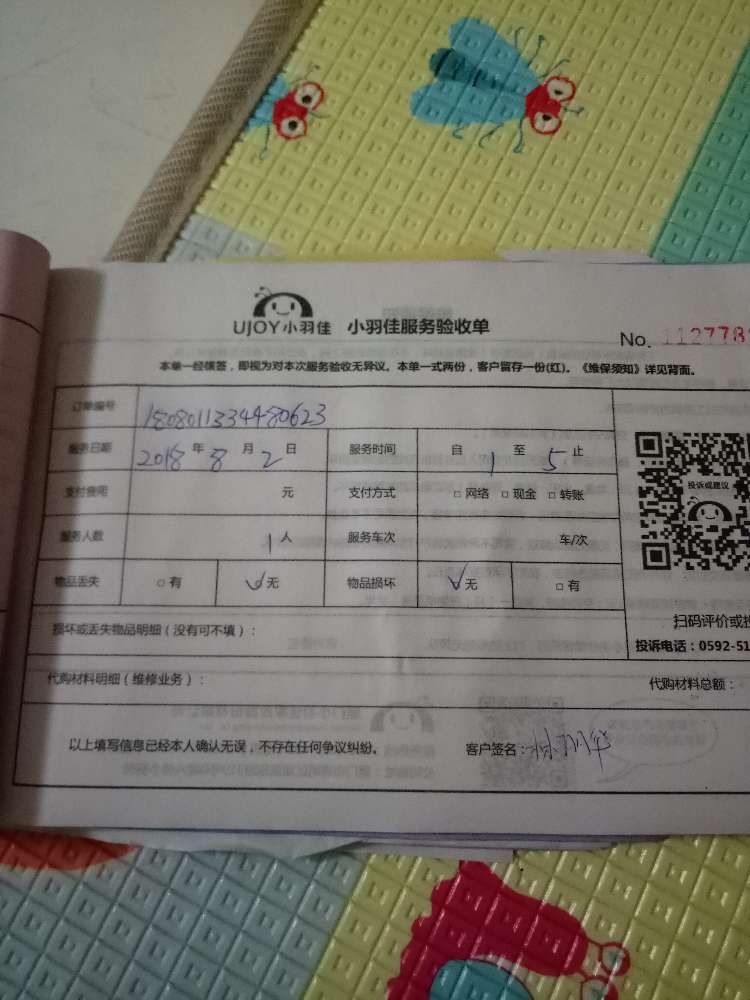 UJOY小羽佳 小羽佳服务验收单
No. 112778
本单一经填签，即视为对本次服务验收无异议。本单一式两份，客户留存一份(红)。《维保须知》详见背面。
订单编号 1808011334480623
服务日期 2018年8月2日 服务时间 自1至5止
支付费用 元 支付方式 □网络 □现金 □转账
服务人数 1人 服务车次 车/次
物品丢失 □有 ✓无 物品损坏 ✓无 □有
投诉或建议
扫码评价或投
投诉电话：0592-51
损坏或丢失物品明细（没有可不填）：
代购材料明细（维修业务）： 代购材料总额：
以上填写信息已经本人确认无误，不存在任何争议纠纷。 客户签名：